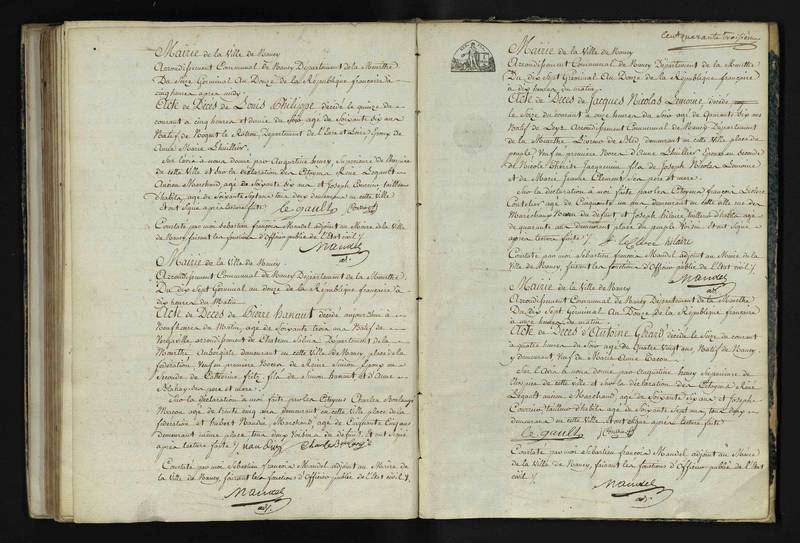 Mairie de la Ville de Nancy
Arrondissement Communal de Nancy Departement de la Meurthe
Du Seize Germinal an Douze de la République française à
cinq heures apres midy
Acte de Décès de Louis Philippe décédé le quinze du
courant a cinq heures et demie du Soir age de Soixante dix ans
Natif de Nogent le Rotrou Departement de l'Eure et Loire, Epoux de
Anne Marie Lhuillier
Sur l'avis a nous donné par Augustine henry, Superieure de l'hospice
de cette Ville et Sur la déclaration des Citoyens René Legault
Ancien Marchand, age de Soixante dix ans et Joseph Tailleur
d'habits, age de Soixante Sept ans tous deux demeurant en cette Ville
et ont Signé après lecture faite le gault
Constaté par moi Sebastien françois Mandel adjoint au Maire de la Ville
de Nancy faisant les fonctions d'Officier public de l'Etat civil
Mandel
adj.
Mairie de la Ville de Nancy
Arrondissement Communal de Nancy Departement de la Meurthe
Du dix Sept Germinal an douze de la République française à
dix heures du Matin
Acte de Décès de Pierre hanaut décédé aujourdhui à
Neuf heures du Matin, agé de Soixante trois ans Natif de
arrondissement de Chateau Salins Departement de la
Meurthe, Aubergiste demeurant en cette Ville de Nancy place de la
federation, Veuf en premiere Noces de Reine Simon Epoux en
Seconde de Catherine fils de Simon hanaut et d'Anne
Blahay, Ses pere et mere
Sur la déclaration à moi faite par les Citoyens Charles Boulangé
Macon age de trente cinq ans demeurant en cette ville place de la
federation et hubert Marchand, age de Cinquante Cinq ans
demeurant même place tous deux Voisins du defunt. et ont Signé
après lecture faite Charle Boulangé
Constaté par moi Sebastien francois Mandel adjoint au Maire de
la Ville de Nancy, faisant les fonctions d'Officier public de l'Etat civil
Mandel
adj.
Cent quarante troisieme
Mairie de la Ville de Nancy
Arrondissement Communal de Nancy Departement de la Meurthe
Du dix Sept Germinal an Douze de la République française
à dix heures du matin
Acte de Décès de Jacques Nicolas Lemoine, décédé
le Seize du courant a onze heures du Soir agé de Quarante Six ans
Natif de Arrondissement Communal de Nancy Departement
de la Meurthe de Bled, demeurant en cette Ville place du
peuple, Veuf en premiere Noces d'Anne Lhuillier Epoux en Seconde
de Nicole Thérèse Jacquemin, fils de Joseph Nicolas Lemoine
et de Marie Jeanne Clement Ses pere et mere
Sur la déclaration à moi faite par les Citoyens françois Leclerc
Coutelier agé de Cinquante un ans demeurant en cette ville rue des
Marechaux Neveu du defunt et Joseph hilaire agé
de quarante ans demeurant place du peuple Voisin et ont Signé
après lecture faite Le Clerc hilaire
Constaté par moi Sébastien françois Mandel adjoint au Maire de la
Ville de Nancy, faisant les fonctions d'Officier public de l'Etat civil
Mandel
adj.
Mairie de la Ville de Nancy
Arrondissement Communal de Nancy Departement de la Meurthe
Du dix Sept Germinal an Douze de la République française
à onze heures du matin
Acte de Décès d'Antoine Gérard décédé le Seize du courant
à quatre heures du Soir age de Quatre Vingt ans, Natif de Nancy
y demeurant, Veuf de Marie Anne
Sur l'avis à nous donné par Augustine henry Superieure de
l'hospice de cette ville et Sur la déclaration des Citoyens René
Legault ancien Marchand, age de Soixante dix ans et Joseph
Tailleur d'habits, age de Soixante Sept ans tous deux
demeurant en cette Ville et ont signé après lecture faite
le gault
Constaté par moi Sébastien françois Mandel adjoint au Maire
de la Ville de Nancy, faisant les fonctions d'Officier public de l'Etat
civil
Mandel
adj.